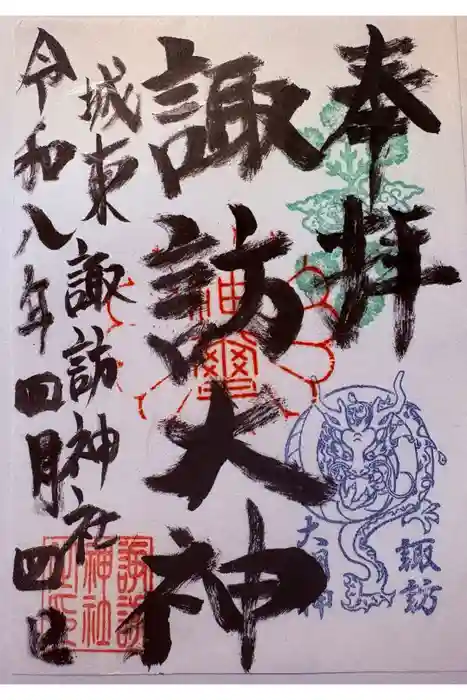 奉拝
諏訪大神
城東 諏訪神社
令和八年四月四日
諏訪
大明神
神璽
諏訪
神社